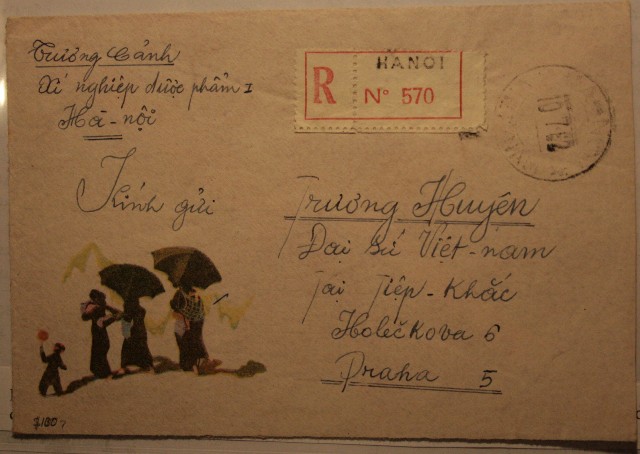 Trương Cảnh
Xí nghiệp dược phẩm I
Hà-nội
HANOI
R N° 570
Kính gửi
Trương Huyên
Đại sứ Việt-nam
Tại Tiệp-Khắc
Holečkova 6
Praha 5